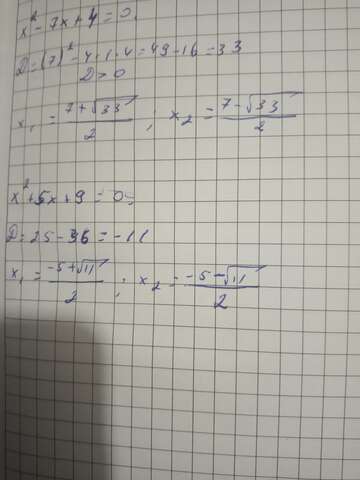 x² - 7x + 4 = 0.
D = (7)² - 4·1·4 = 49 - 16 = 33
D > 0
x₁ = (7 + √33)/2 ; x₂ = (7 - √33)/2
x² + 5x + 9 = 0
D = 25 - 36 = -11
x₁ = (-5 + √11)/2 ; x₂ = (-5 - √11)/2